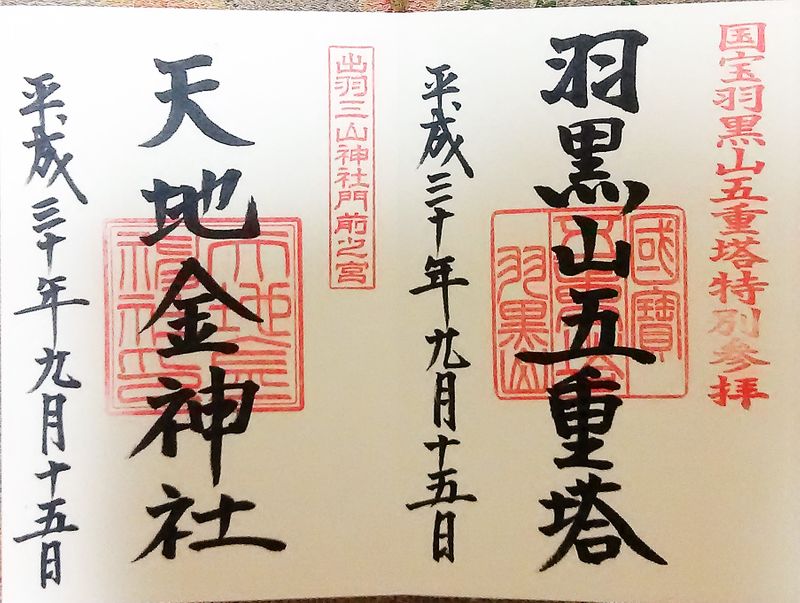 国宝羽黒山五重塔特別参拝
羽黒山五重塔
國寶
五重塔
羽黒山
平成三十年九月十五日
出羽三山神社門前之宮
天地金神社
平成三十年九月十五日